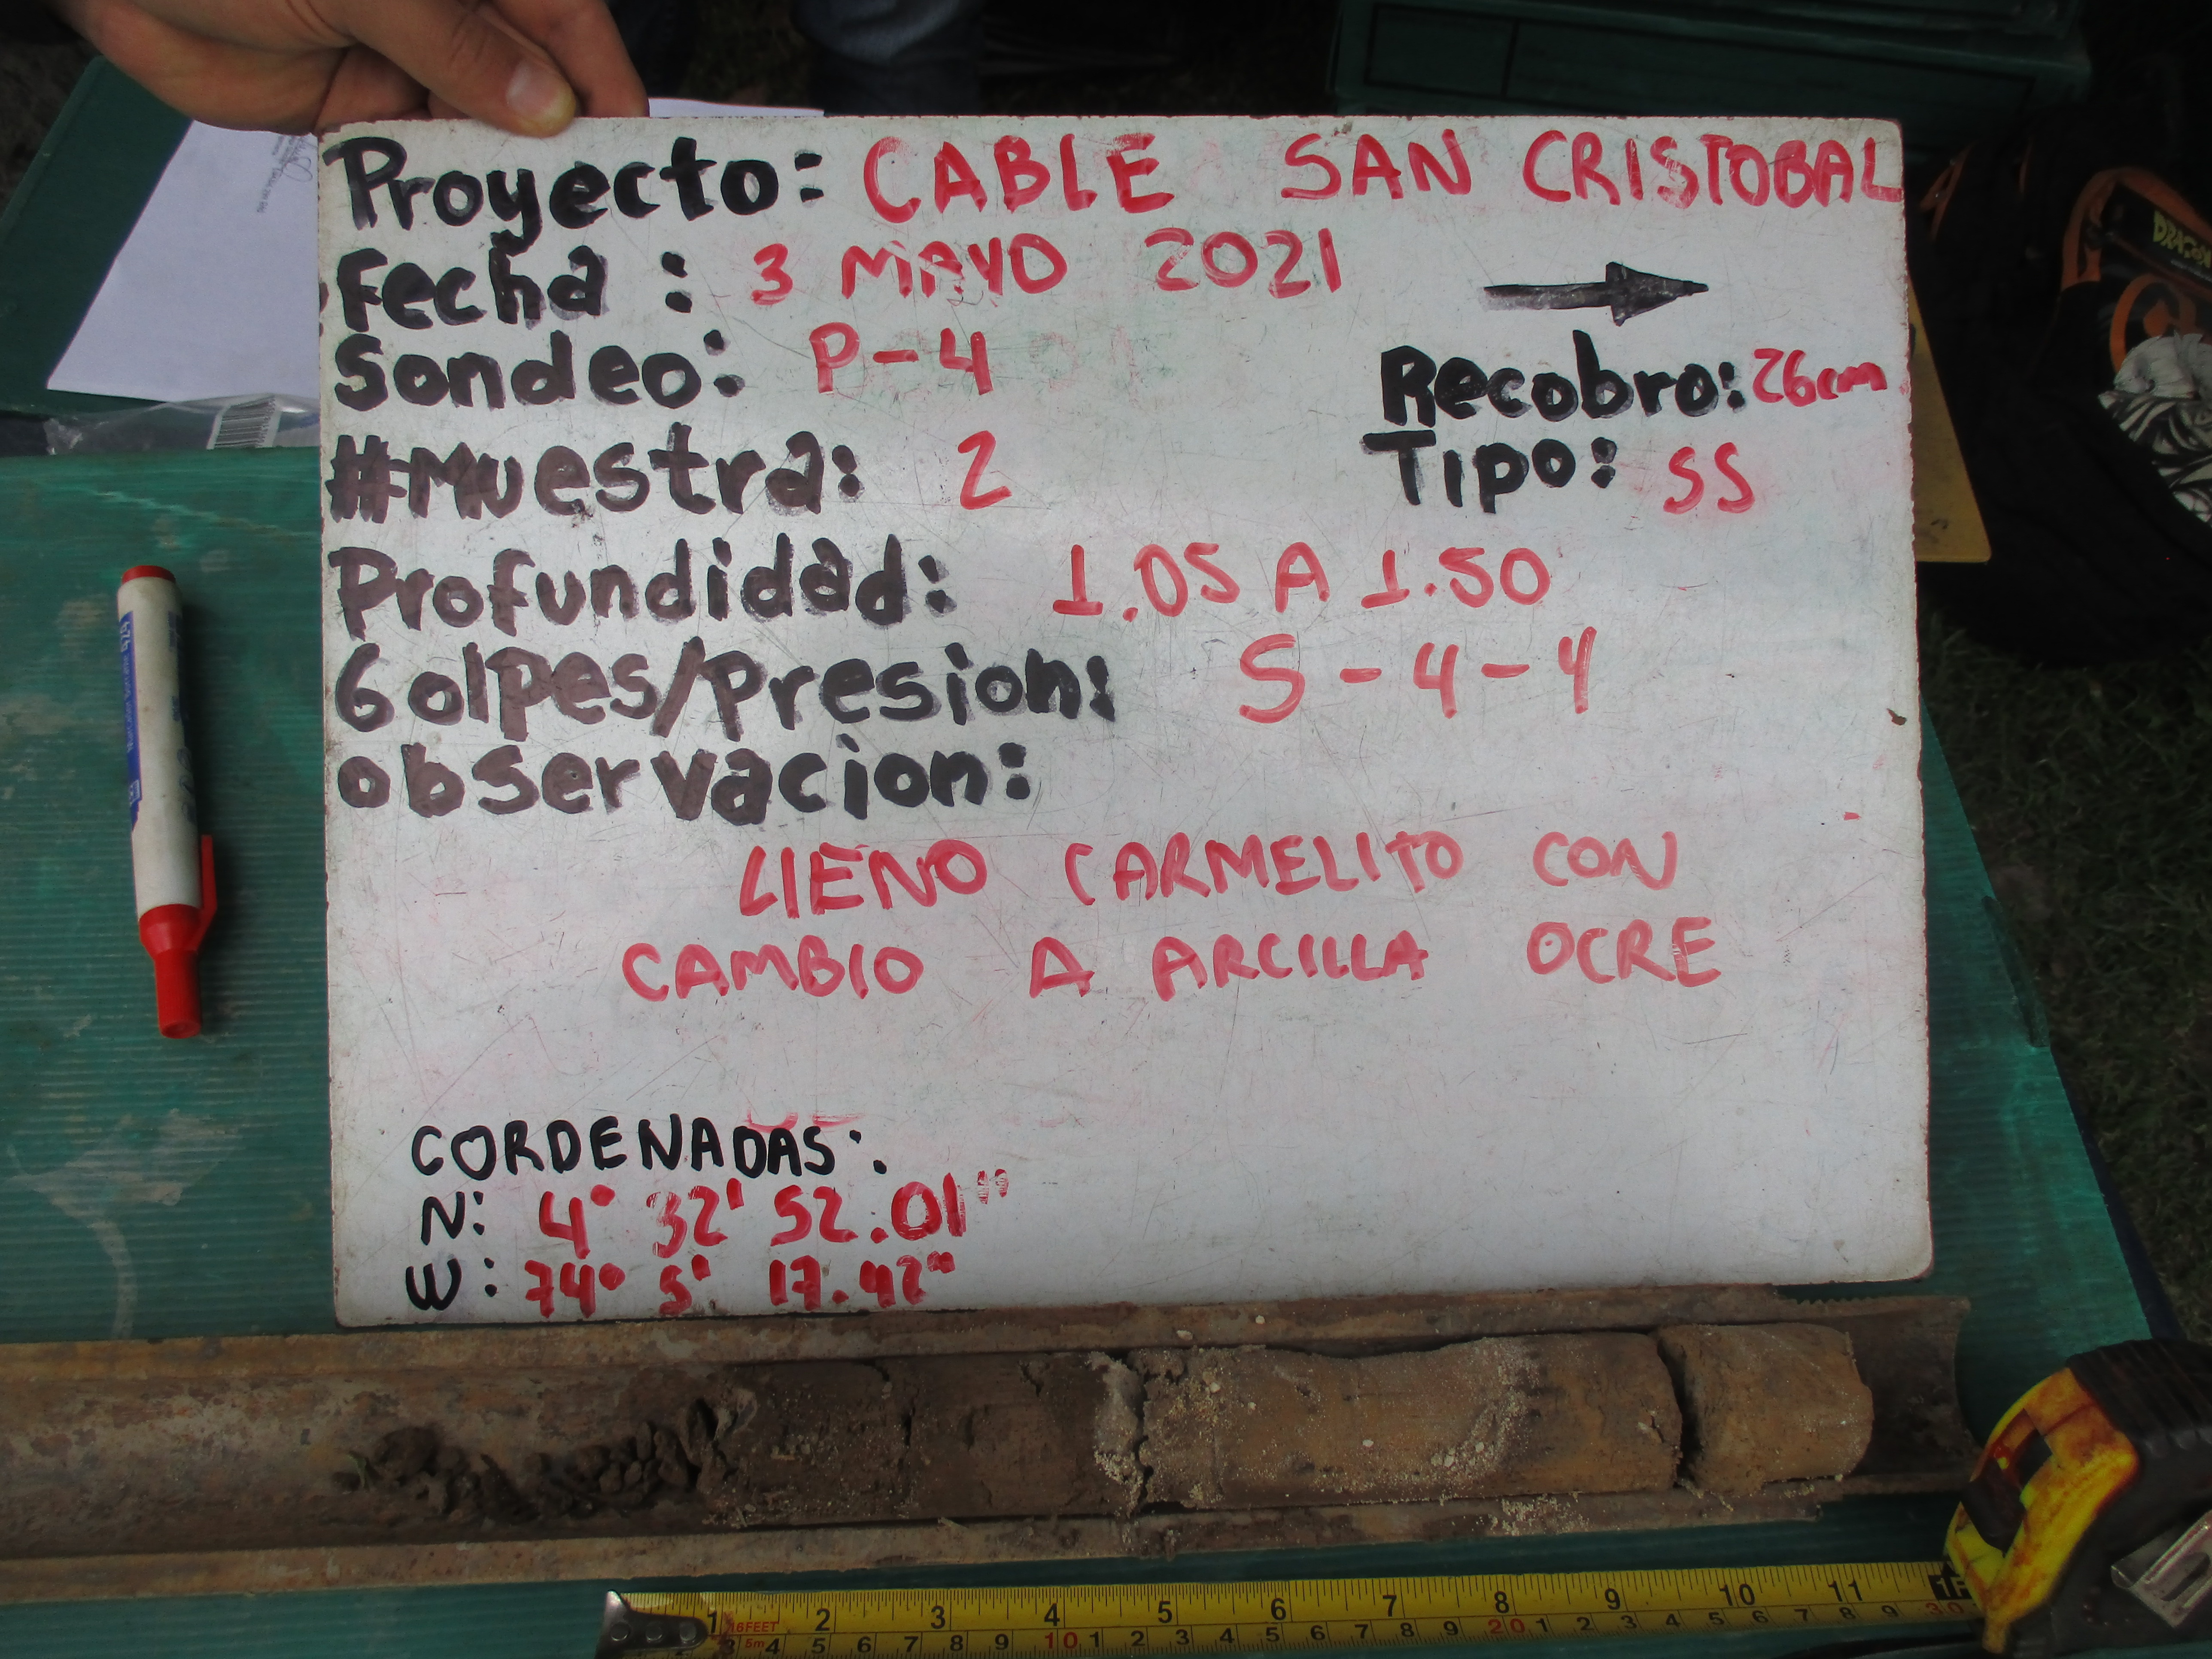 Proyecto: CABLE SAN CRISTOBAL
Fecha: 3 MAYO 2021
Sondeo: P-4
Recobro: 26cm
#Muestra: 2
Tipo: SS
Profundidad: 1.05 A 1.50
Golpes/Presion: 5-4-4
observacion:
LlENO CARMELITO CON
CAMBIO A ARCILLA OCRE
CORDENADAS:
N: 4° 32' 52.01"
W: 74° 5' 17.42"
DRAGON
1 2 3 4 5 6 7 8 9 10 11
16FEET
3 5m 4 5 6 7 8 9 10 1 2 3 4 5 6 7 8 9 20 1 2 3 4 5 6 7 8 9 30